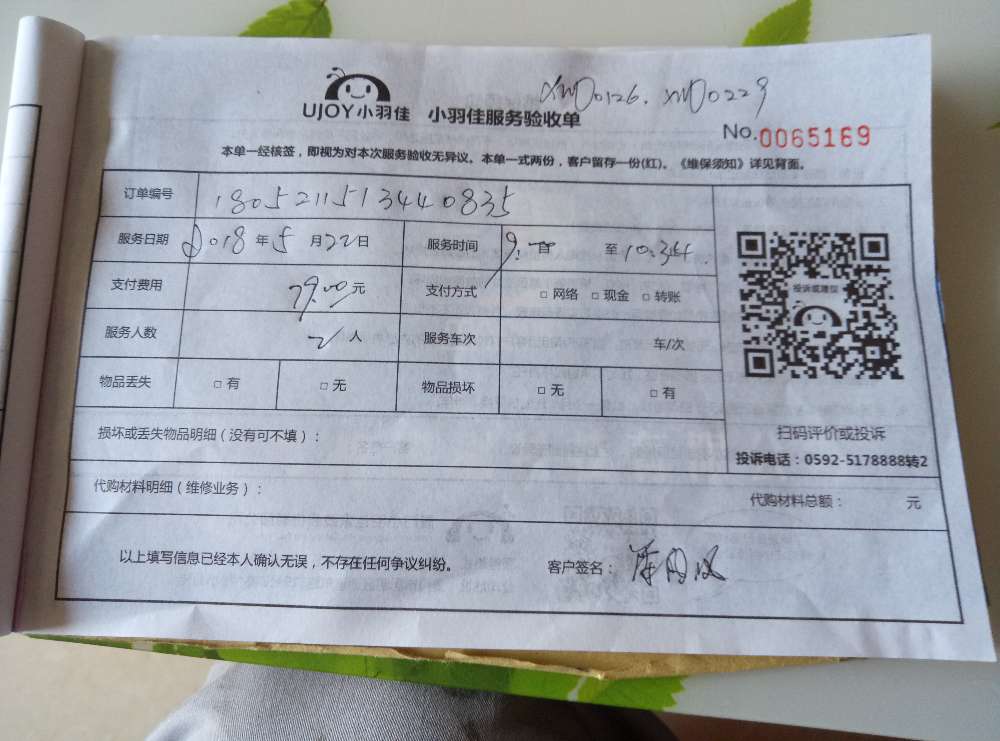 XMD0126. XMD0229
UJOY小羽佳 小羽佳服务验收单
No.0065169
本单一经核签，即视为对本次服务验收无异议。本单一式两份，客户留存一份(红)。《维保须知》详见背面。
订单编号 18052115134440835
服务日期 2018年5月22日 服务时间 9: 至10:34
支付费用 79.00元 支付方式 □网络 □现金 □转账
投诉或建议
服务人数 2人 服务车次 车/次
物品丢失 □有 □无 物品损坏 □无 □有
扫码评价或投诉
损坏或丢失物品明细（没有可不填）：
投诉电话：0592-5178888转2
代购材料明细（维修业务）： 代购材料总额： 元
以上填写信息已经本人确认无误，不存在任何争议纠纷。 客户签名：